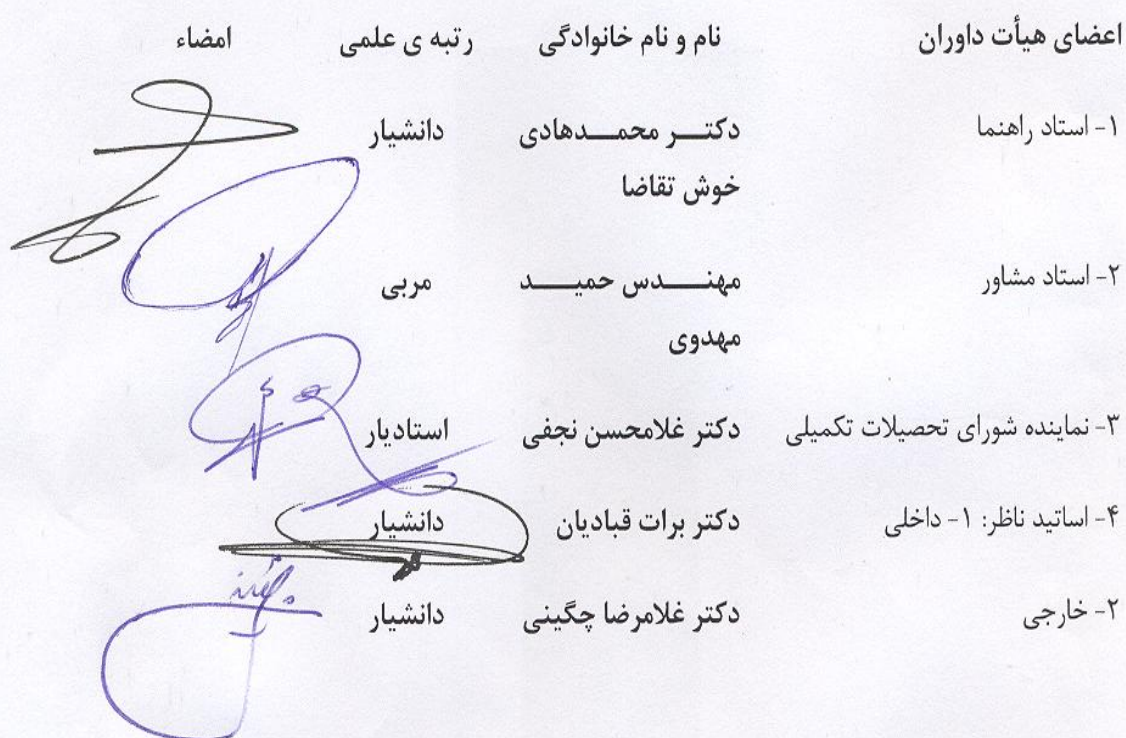 اعضای هیأت داوران نام و نام خانوادگی رتبه ی علمی امضاء
۱- استاد راهنما دکتـــر محمـــدهادی دانشیار
خوش تقاضا
۲- استاد مشاور مهنـــــدس حمیـــــد مربی
مهدوی
۳- نماینده شورای تحصیلات تکمیلی دکتر غلامحسن نجفی استادیار
۴- اساتید ناظر: ۱- داخلی دکتر برات قبادیان دانشیار
۲- خارجی دکتر غلامرضا چگینی دانشیار